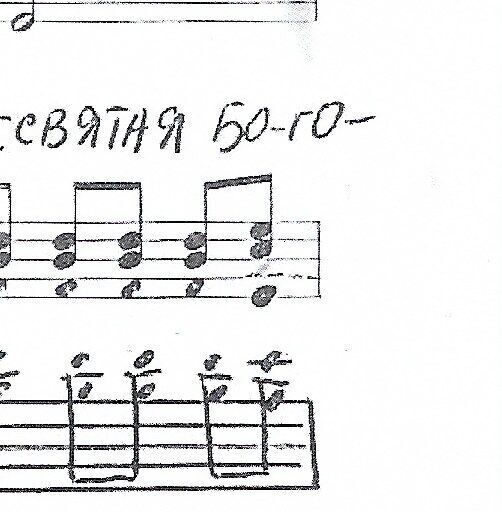 СВЯТАЯ БО-ГО-